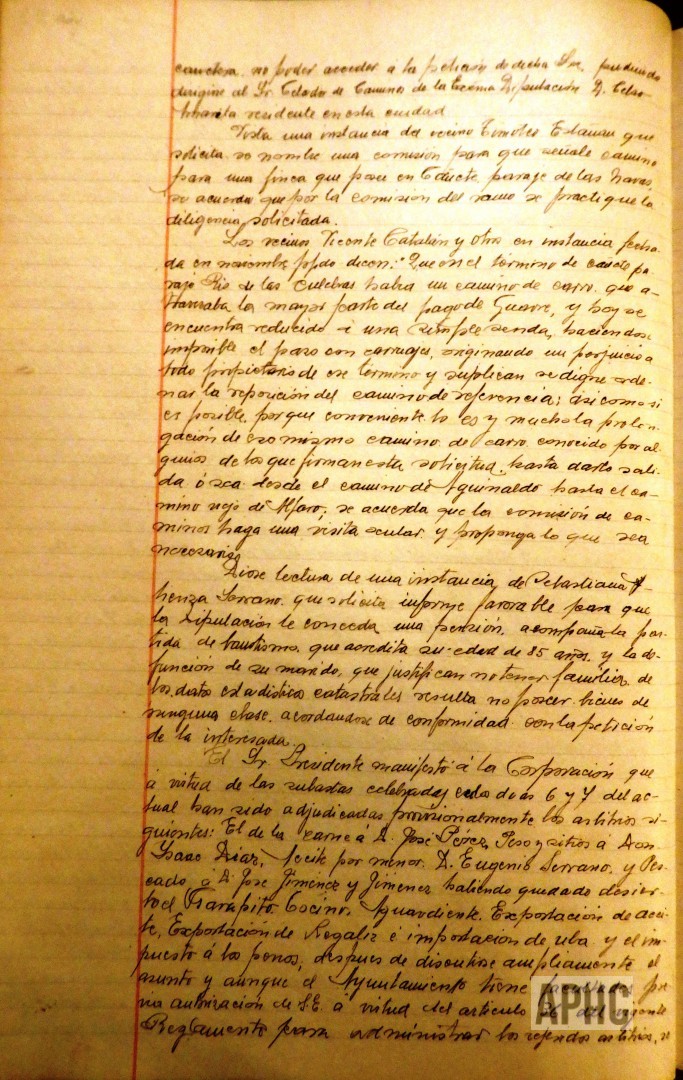 carretera no poder acceder á la petición de dicha Sra. pudiendo
dirigirse al Sr. Celador de Caminos de la Excma Diputación D. Celso
residente en esta ciudad
Vista una instancia del vecino Timoteo que
solicita se nombre una comisión para que señale camino
para una finca que posee en Cañete paraje de las Navas,
se acuerda que por la comisión del ramo se practique la
diligencia solicitada.
Los vecinos Vicente Catalán y otros en instancia fecha-
da en noviembre ppdo dicen: Que en el término de pa-
raje Rio de las Culebras había un camino de carro que a-
travesaba la mayor parte del pago de y hoy se
encuentra reducido á una simple senda, haciendose
imposible el paso con carruajes, originando un perjuicio a
todo propietario de ese término y suplican se digne orde-
nar la reposición del camino de referencia; asi como si
es posible, porque conveniente lo es y mucho la prolon-
gación de ese mismo camino de carro conocido por al-
gunos de los que firman esta solicitud, hasta darle sali-
da ó sea desde el camino de Aguinaldo hasta el ca-
mino viejo de Alfaro; se acuerda que la comisión de ca-
minos haga una visita ocular y proponga lo que sea
necesario
Diose lectura de una instancia de Sebastiana A-
tienza Serrano que solicita informe favorable para que
la Diputación le conceda una pensión, acompaña la par-
tida de bautismo que acredita su edad de 85 años y la de-
función de su marido, que justifican no tener familia, de
los datos estadisticos catastrales resulta no poseer bienes de
ninguna clase, acordandose de conformidad con la petición
de la interesada.
El Sr. Presidente manifestó á la Corporación que
á virtud de las subastas celebradas en los dias 6 y 7 del ac-
tual han sido adjudicadas provisionalmente los arbitrios si-
guientes: El de la carne á D. José Pérez, Peso y sitios a Don
Ysaac Diaz, Aceite por menor D. Eugenio Serrano, y Pes-
cado á D. José Jiménez y Jimenez habiendo quedado desier-
to el Tocino, Aguardiente, Exportación de acei-
te, Exportación de Regaliz é importación de uba y el im-
puesto á los perros, despues de discutirse ampliamente el
asunto y aunque el Ayuntamiento tiene facultades
autorización de S.E. á virtud del articulo del vigente
Reglamento para administrar los referidos arbitrios, se
APHC